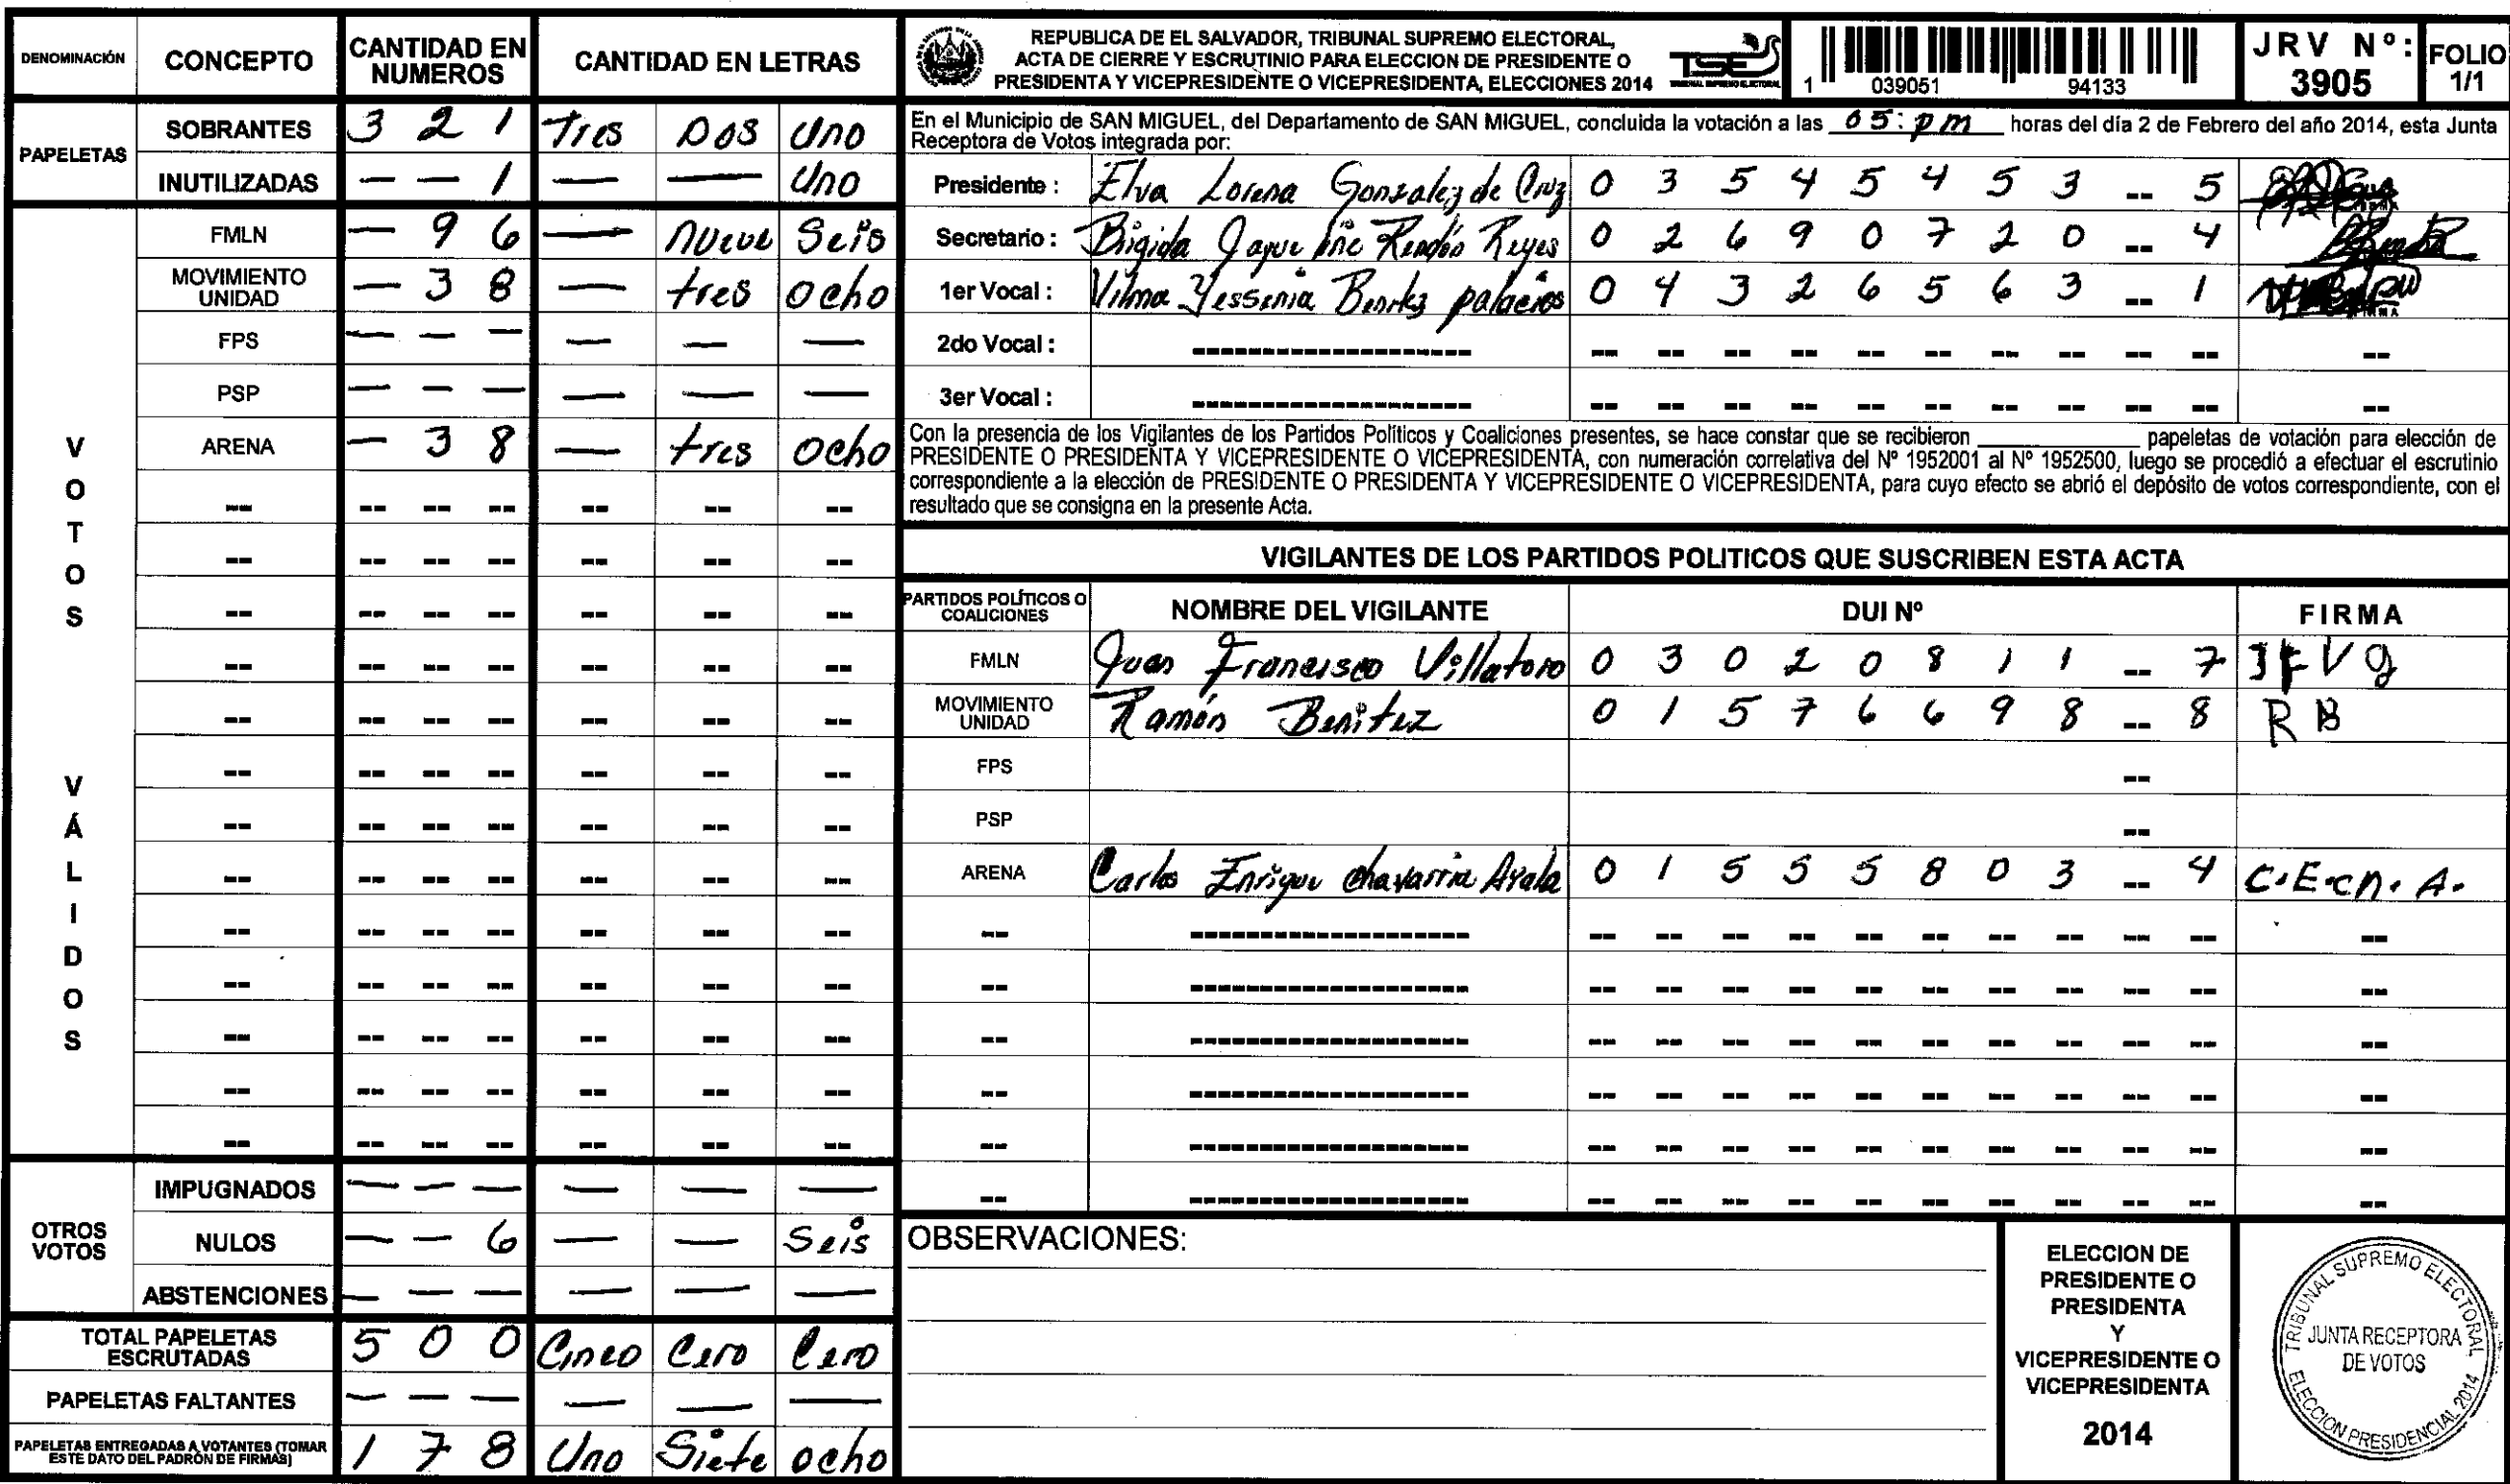 DENOMINACIÓN CONCEPTO CANTIDAD EN NUMEROS CANTIDAD EN LETRAS
PAPELETAS
SOBRANTES 3 2 1 Tres Dos Uno
INUTILIZADAS — — 1 — — Uno
VOTOS VÁLIDOS
FMLN — 9 6 — nueve Seis
MOVIMIENTO UNIDAD — 3 8 — tres ocho
FPS — — — — — —
PSP — — — — — —
ARENA — 3 8 — tres ocho
OTROS VOTOS
IMPUGNADOS — — — — — —
NULOS — — 6 — — Seis
ABSTENCIONES — — — — — —
TOTAL PAPELETAS ESCRUTADAS 5 0 0 Cinco Cero Cero
PAPELETAS FALTANTES — — — — — —
PAPELETAS ENTREGADAS A VOTANTES (TOMAR ESTE DATO DEL PADRÓN DE FIRMAS) 1 7 8 Uno Siete ocho
REPUBLICA DE EL SALVADOR, TRIBUNAL SUPREMO ELECTORAL,
ACTA DE CIERRE Y ESCRUTINIO PARA ELECCION DE PRESIDENTE O
PRESIDENTA Y VICEPRESIDENTE O VICEPRESIDENTA, ELECCIONES 2014
TSE
1 039051 94133
JRV Nº: 3905
FOLIO 1/1
En el Municipio de SAN MIGUEL, del Departamento de SAN MIGUEL, concluida la votación a las 05: pm horas del día 2 de Febrero del año 2014, esta Junta
Receptora de Votos integrada por:
Presidente : Elva Lorena Gonzalez de Cruz 0 3 5 4 5 4 5 3 -- 5
Secretario : Brigida Jaque Rendón Reyes 0 2 6 9 0 7 2 0 -- 4
1er Vocal : Vilma Yessenia Benitez palacios 0 4 3 2 6 5 6 3 -- 1
2do Vocal :
3er Vocal :
Con la presencia de los Vigilantes de los Partidos Políticos y Coaliciones presentes, se hace constar que se recibieron ________ papeletas de votación para elección de
PRESIDENTE O PRESIDENTA Y VICEPRESIDENTE O VICEPRESIDENTA, con numeración correlativa del Nº 1952001 al Nº 1952500, luego se procedió a efectuar el escrutinio
correspondiente a la elección de PRESIDENTE O PRESIDENTA Y VICEPRESIDENTE O VICEPRESIDENTA, para cuyo efecto se abrió el depósito de votos correspondiente, con el
resultado que se consigna en la presente Acta.
VIGILANTES DE LOS PARTIDOS POLITICOS QUE SUSCRIBEN ESTA ACTA
PARTIDOS POLÍTICOS O COALICIONES NOMBRE DEL VIGILANTE DUI Nº FIRMA
FMLN Juan Francisco Villatoro 0 3 0 2 0 8 1 1 -- 7 JFVG
MOVIMIENTO UNIDAD Ramón Benitez 0 1 5 7 6 6 9 8 -- 8 R B
FPS --
PSP --
ARENA Carlos Enrique chavarria Ayala 0 1 5 5 5 8 0 3 -- 4 C.E.ch.A.
OBSERVACIONES:
ELECCION DE
PRESIDENTE O
PRESIDENTA
Y
VICEPRESIDENTE O
VICEPRESIDENTA
2014
TRIBUNAL SUPREMO ELECTORAL
JUNTA RECEPTORA
DE VOTOS
ELECCION PRESIDENCIAL 2014